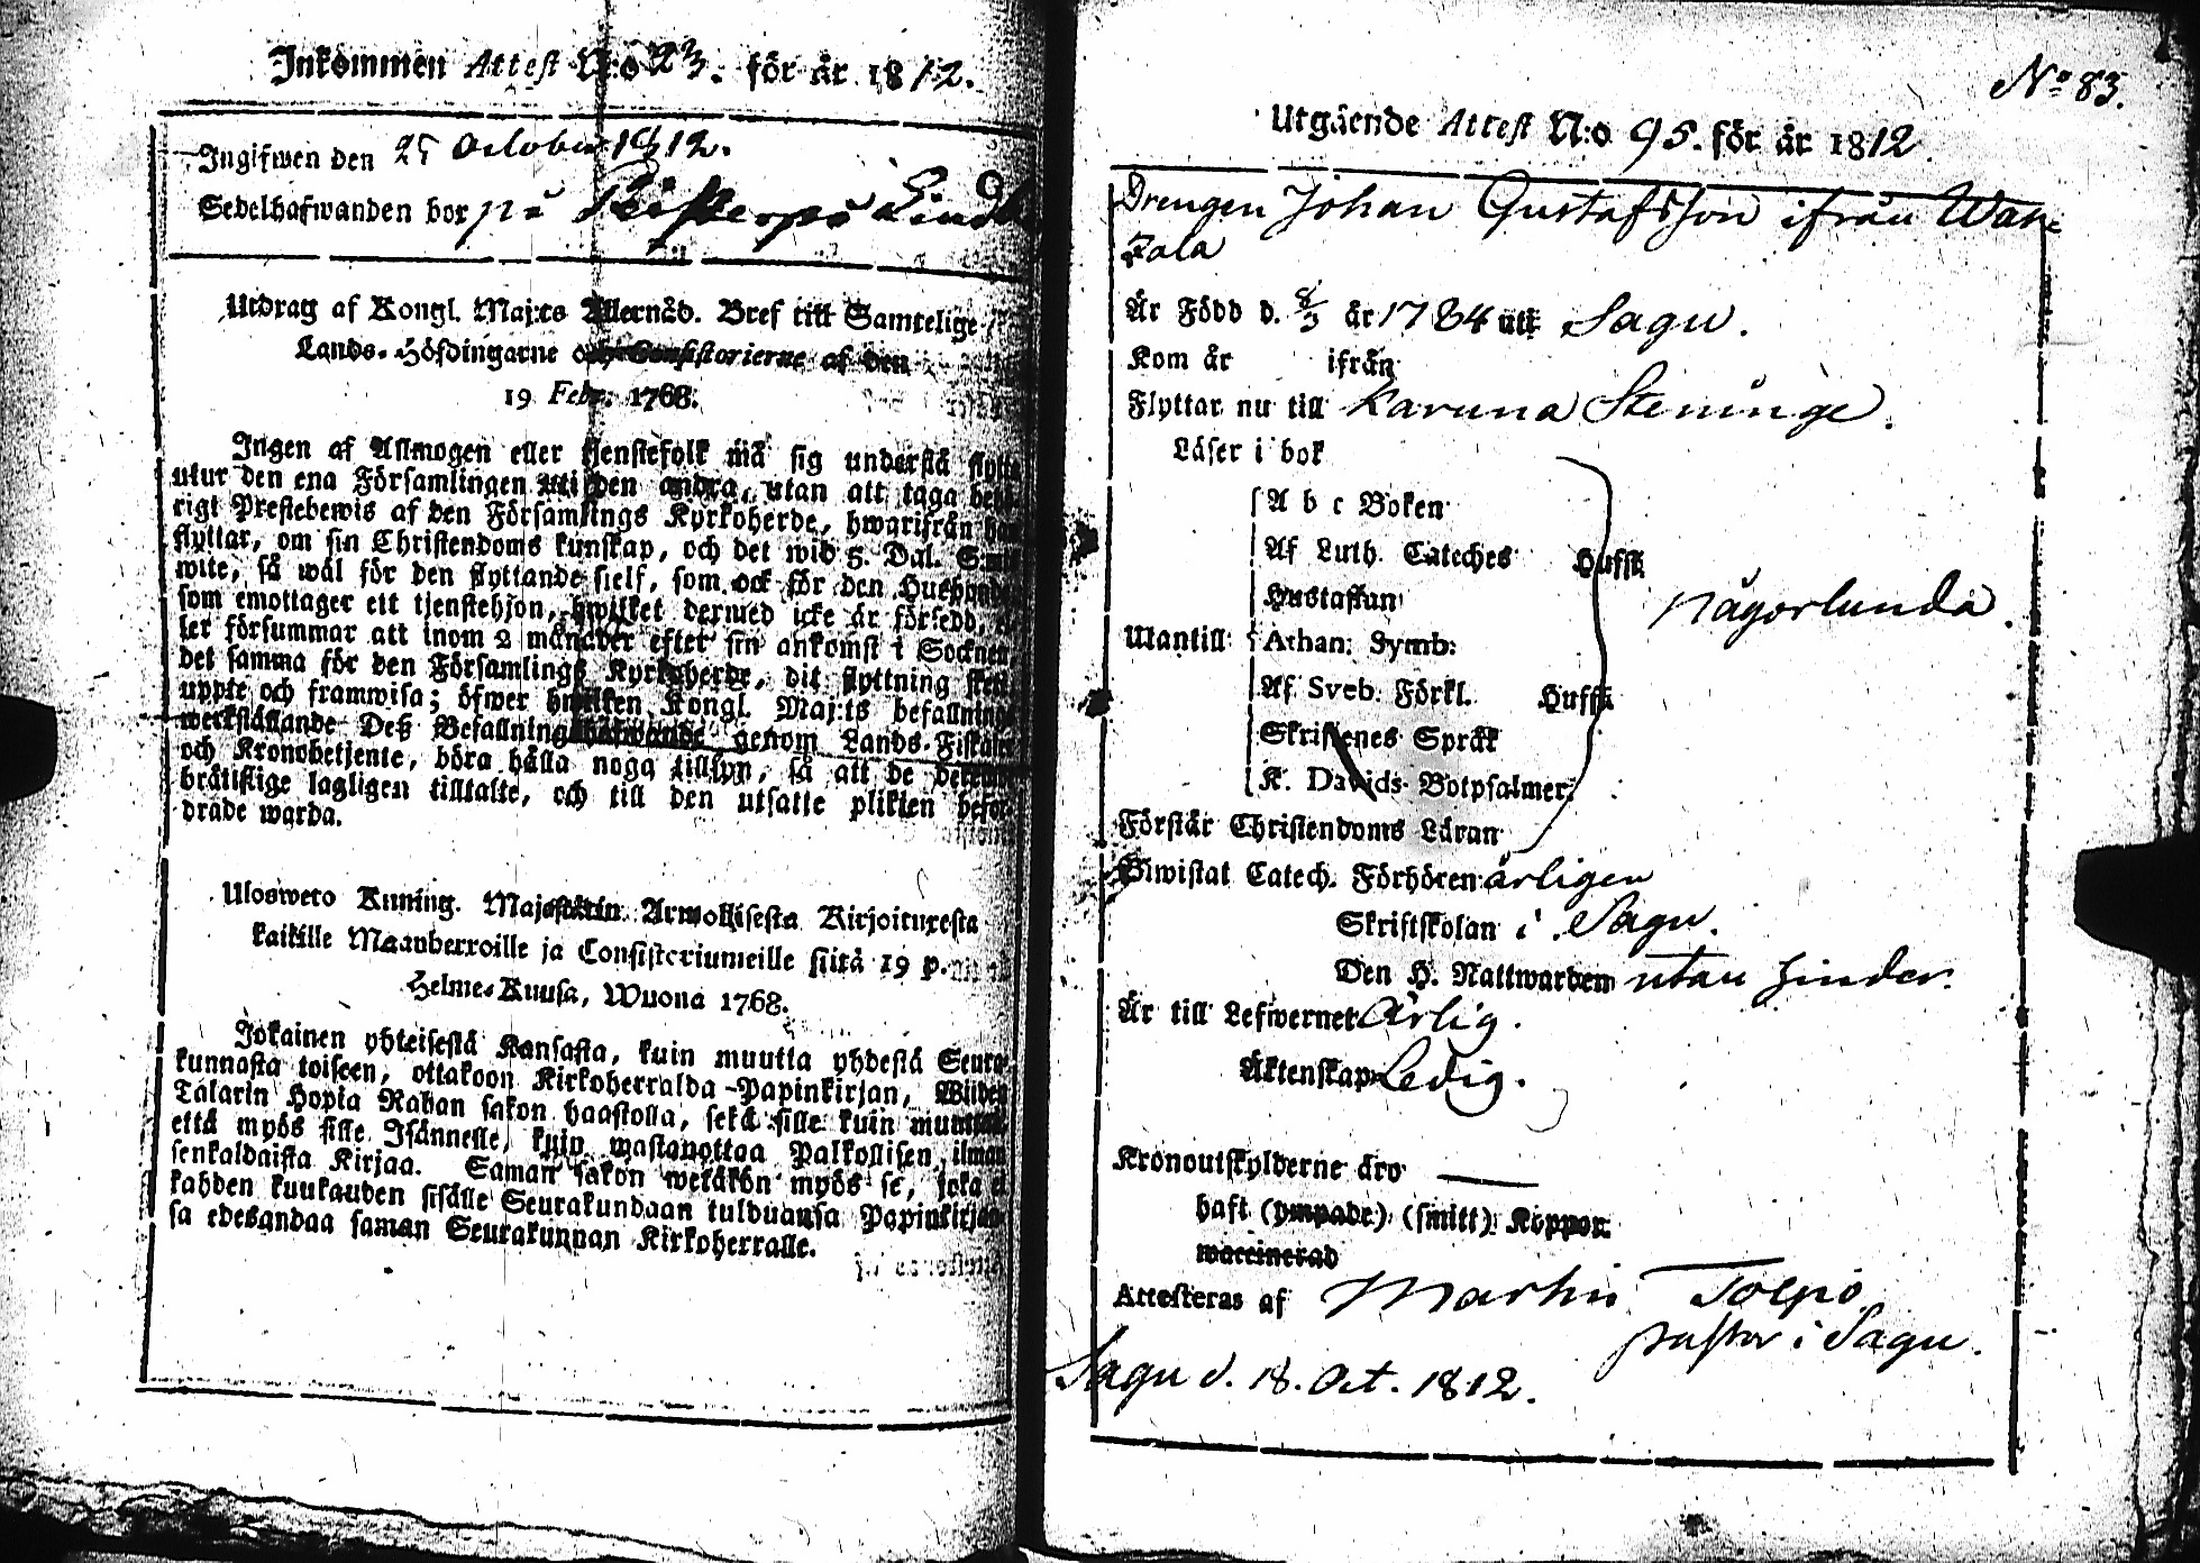 Inkommen Attest N:o 23. för år 1812.
Ingifwen den 25 October 1812.
Sedelhafwanden bor på
Utdrag af Kongl. Maj:ts Allernåd. Bref till Samtelige
Lands-Höfdingarne och Consistorierne af den
19 Febr. 1768.
Ingen af Allmogen eller tjenstefolk må sig understå flytta
utur den ena Församlingen uti den andra, utan att taga behö-
rigt Prestebewis af den Församlings Kyrkoherde, hwarifrån han
flyttar, om sin Christendoms kunskap, och det wid 5. Dal. S:mts
wite, så wäl för den flyttande sielf, som ock för den Husbonde
som emottager ett tjenstehjon, hwilket dermed icke är försedd, el-
ler försummar att inom 2 månader efter sin ankomst i Socknen,
det samma för den Församlings Kyrkoherde, dit flyttning skett
uppte och framwisa; öfwer hwilken Kongl. Maj:ts befallnings
werkställande Deß Befallningshafwande genom Lands-Fiskaler
och Kronobetjente, böra hålla noga tillsyn, så att de deremot
brättslige lagligen tilltalte, och till den utsatte plikten befor-
drade warda.
Uloswero Kuning. Majestätin Armollisesta Kirjoituxesta
kaikille Maanherroille ja Consistoriumeille siitä 19 p.
Helme-Kuusa, Wuona 1768.
Jokainen yhteisestä Kansasta, kuin muutta yhdestä Seura-
kunnasta toiseen, ottakoon Kirkoherralda Papinkirjan, Wiiden
Talarin Hopia Rahan sakon haastolla, sekä sille kuin muuttaa
että myös sille Isännelle, kuin wastanottaa Palkollisen, ilman
senkaldaista Kirjaa. Saman sakon wetäkön myös se, joka ei
kahden kuukauden sisälle Seurakundaan tulduansa Papinkirjaan-
sa edesandaa saman Seurakunnan Kirkoherralle.
No 83.
Utgående Attest N:o 95. för år 1812.
Drengen Johan Gustafsson ifrån Wan-
Är Född d. 8/3 år 1784 uti Sagu.
Kom år ifrån
Flyttar nu till Karuna Steninge.
Läser i bok
A b c Boken
Af Luth. Cateches Husst.
Hustaflan någorlunda.
Utantill: Athan: Symb:
Af Sveb. Förkl. Husst.
Skriftenes Språk
K. Davids Botpsalmer.
Förstår Christendoms Läran
Biwistat Catech. Förhören årligen
Skriftskolan i Sagu.
Den H. Nattwarden utan hinder.
Är till Lefwernet Ärlig.
Äktenskap Ledig.
Kronoutskylderne äro
haft (ympade) (smitt) Koppor.
waccinerad
Attesteras af Martin Tolpo
pastor i Sagu.
Sagu d. 18. Oct. 1812.